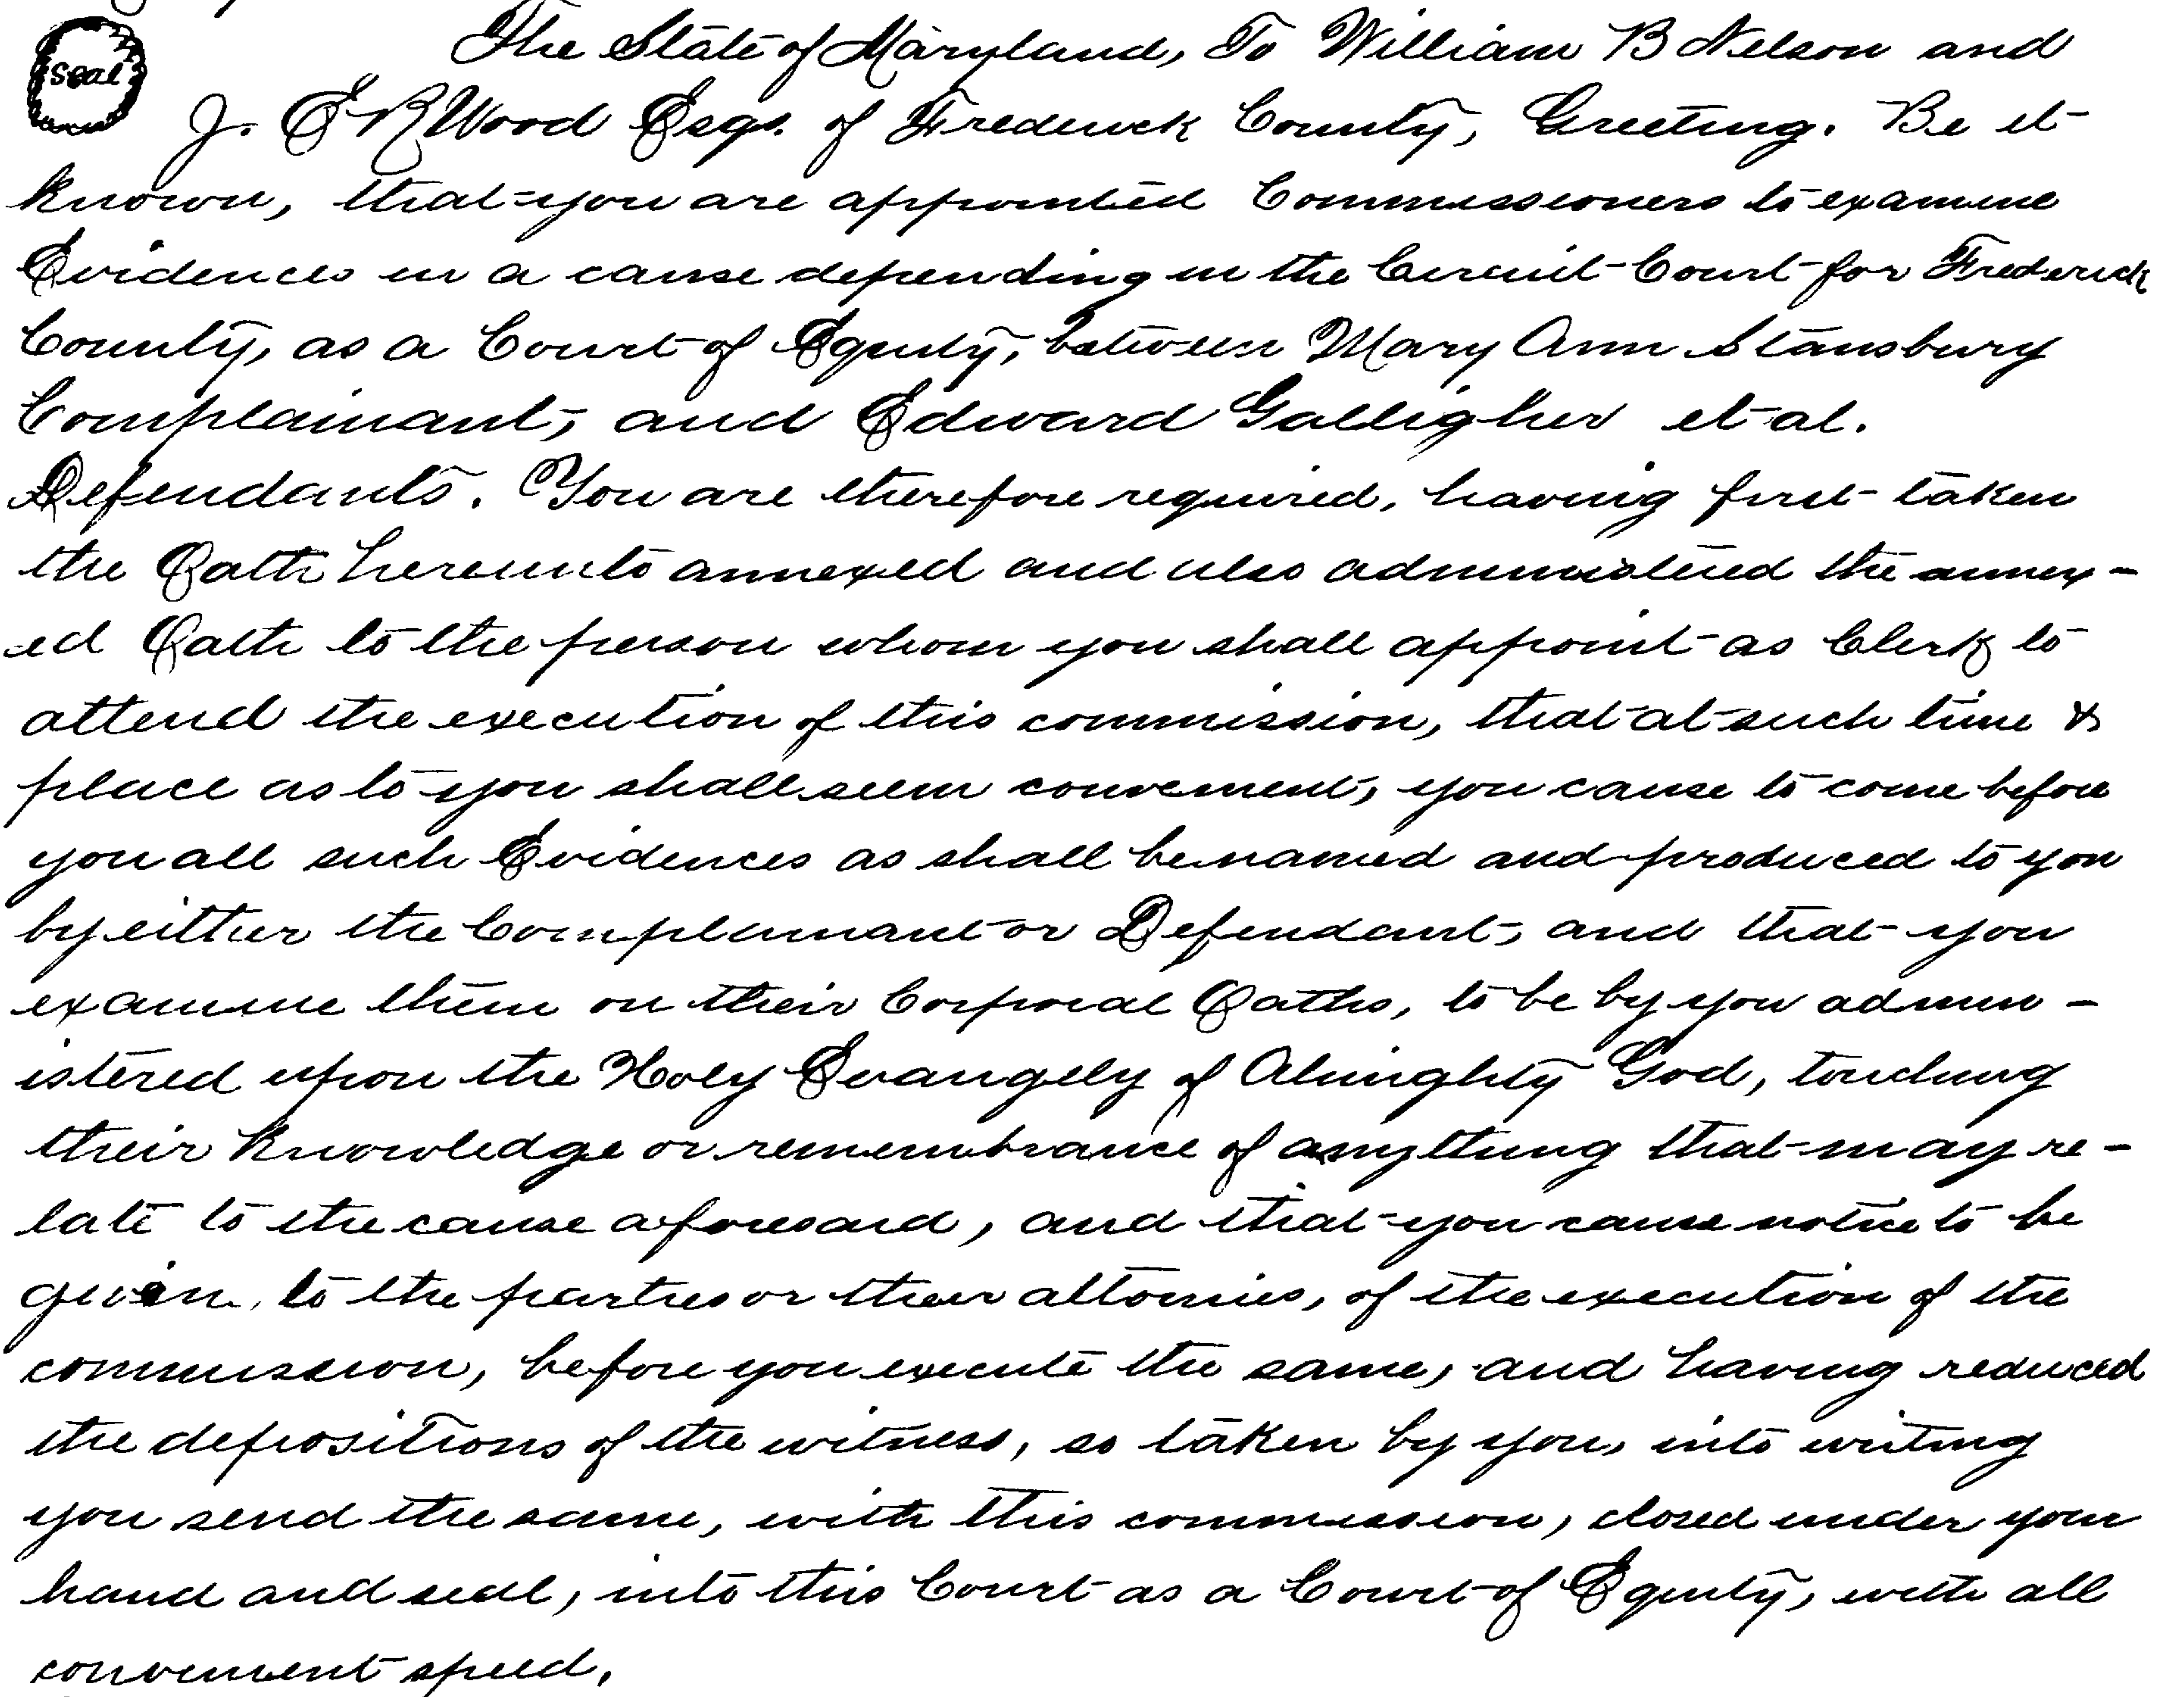 The State of Maryland, To William B Nelson and
Seal
J. E R Wood Esqs. of Frederick County, Greeting. Be it
known, that you are appointed Commissioners to examine
Evidences in a cause depending in the Circuit Court for Frederick
County, as a Court of Equity, between Mary Ann Stansbury
Complainant, and Edward Galligher et al.
Defendants. You are therefore required, having first taken
the Oath hereunto annexed and also administered the annex-
ed Oath to the person whom you shall appoint as Clerk to
attend the execution of this commission, that at such time &
place as to you shall seem convenient, you cause to come before
you all such Evidences as shall be named and produced to you
by either the Complainant or Defendant, and that you
examine them on their Corporal Oaths, to be by you admin-
istered upon the Holy Evangely of Almighty God, touching
their knowledge or remembrance of anything that may re-
late to the cause aforesaid, and that you cause notice to be
given, to the parties or their attornies, of the execution of the
commission, before you execute the same, and having reduced
the depositions of the witness, so taken by you, into writing
you send the same, with this commission, closed under your
hand and seal, into this Court as a Court of Equity, with all
convenient speed.